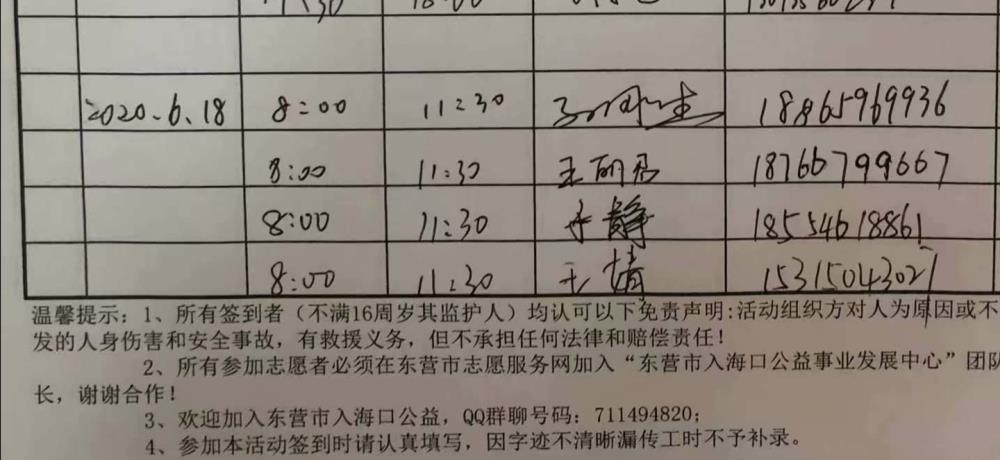 2020.6.18 8:00 11:30 18865969936
8:00 11:30 王丽君 18766799667
8:00 11:30 静 18554618861
8:00 11:30 王婧 15315043027
温馨提示：1、所有签到者（不满16周岁其监护人）均认可以下免责声明:活动组织方对人为原因或不
发的人身伤害和安全事故，有救援义务，但不承担任何法律和赔偿责任！
2、所有参加志愿者必须在东营市志愿服务网加入“东营市入海口公益事业发展中心”团队
长，谢谢合作！
3、欢迎加入东营市入海口公益，QQ群聊号码：711494820；
4、参加本活动签到时请认真填写，因字迹不清晰漏传工时不予补录。